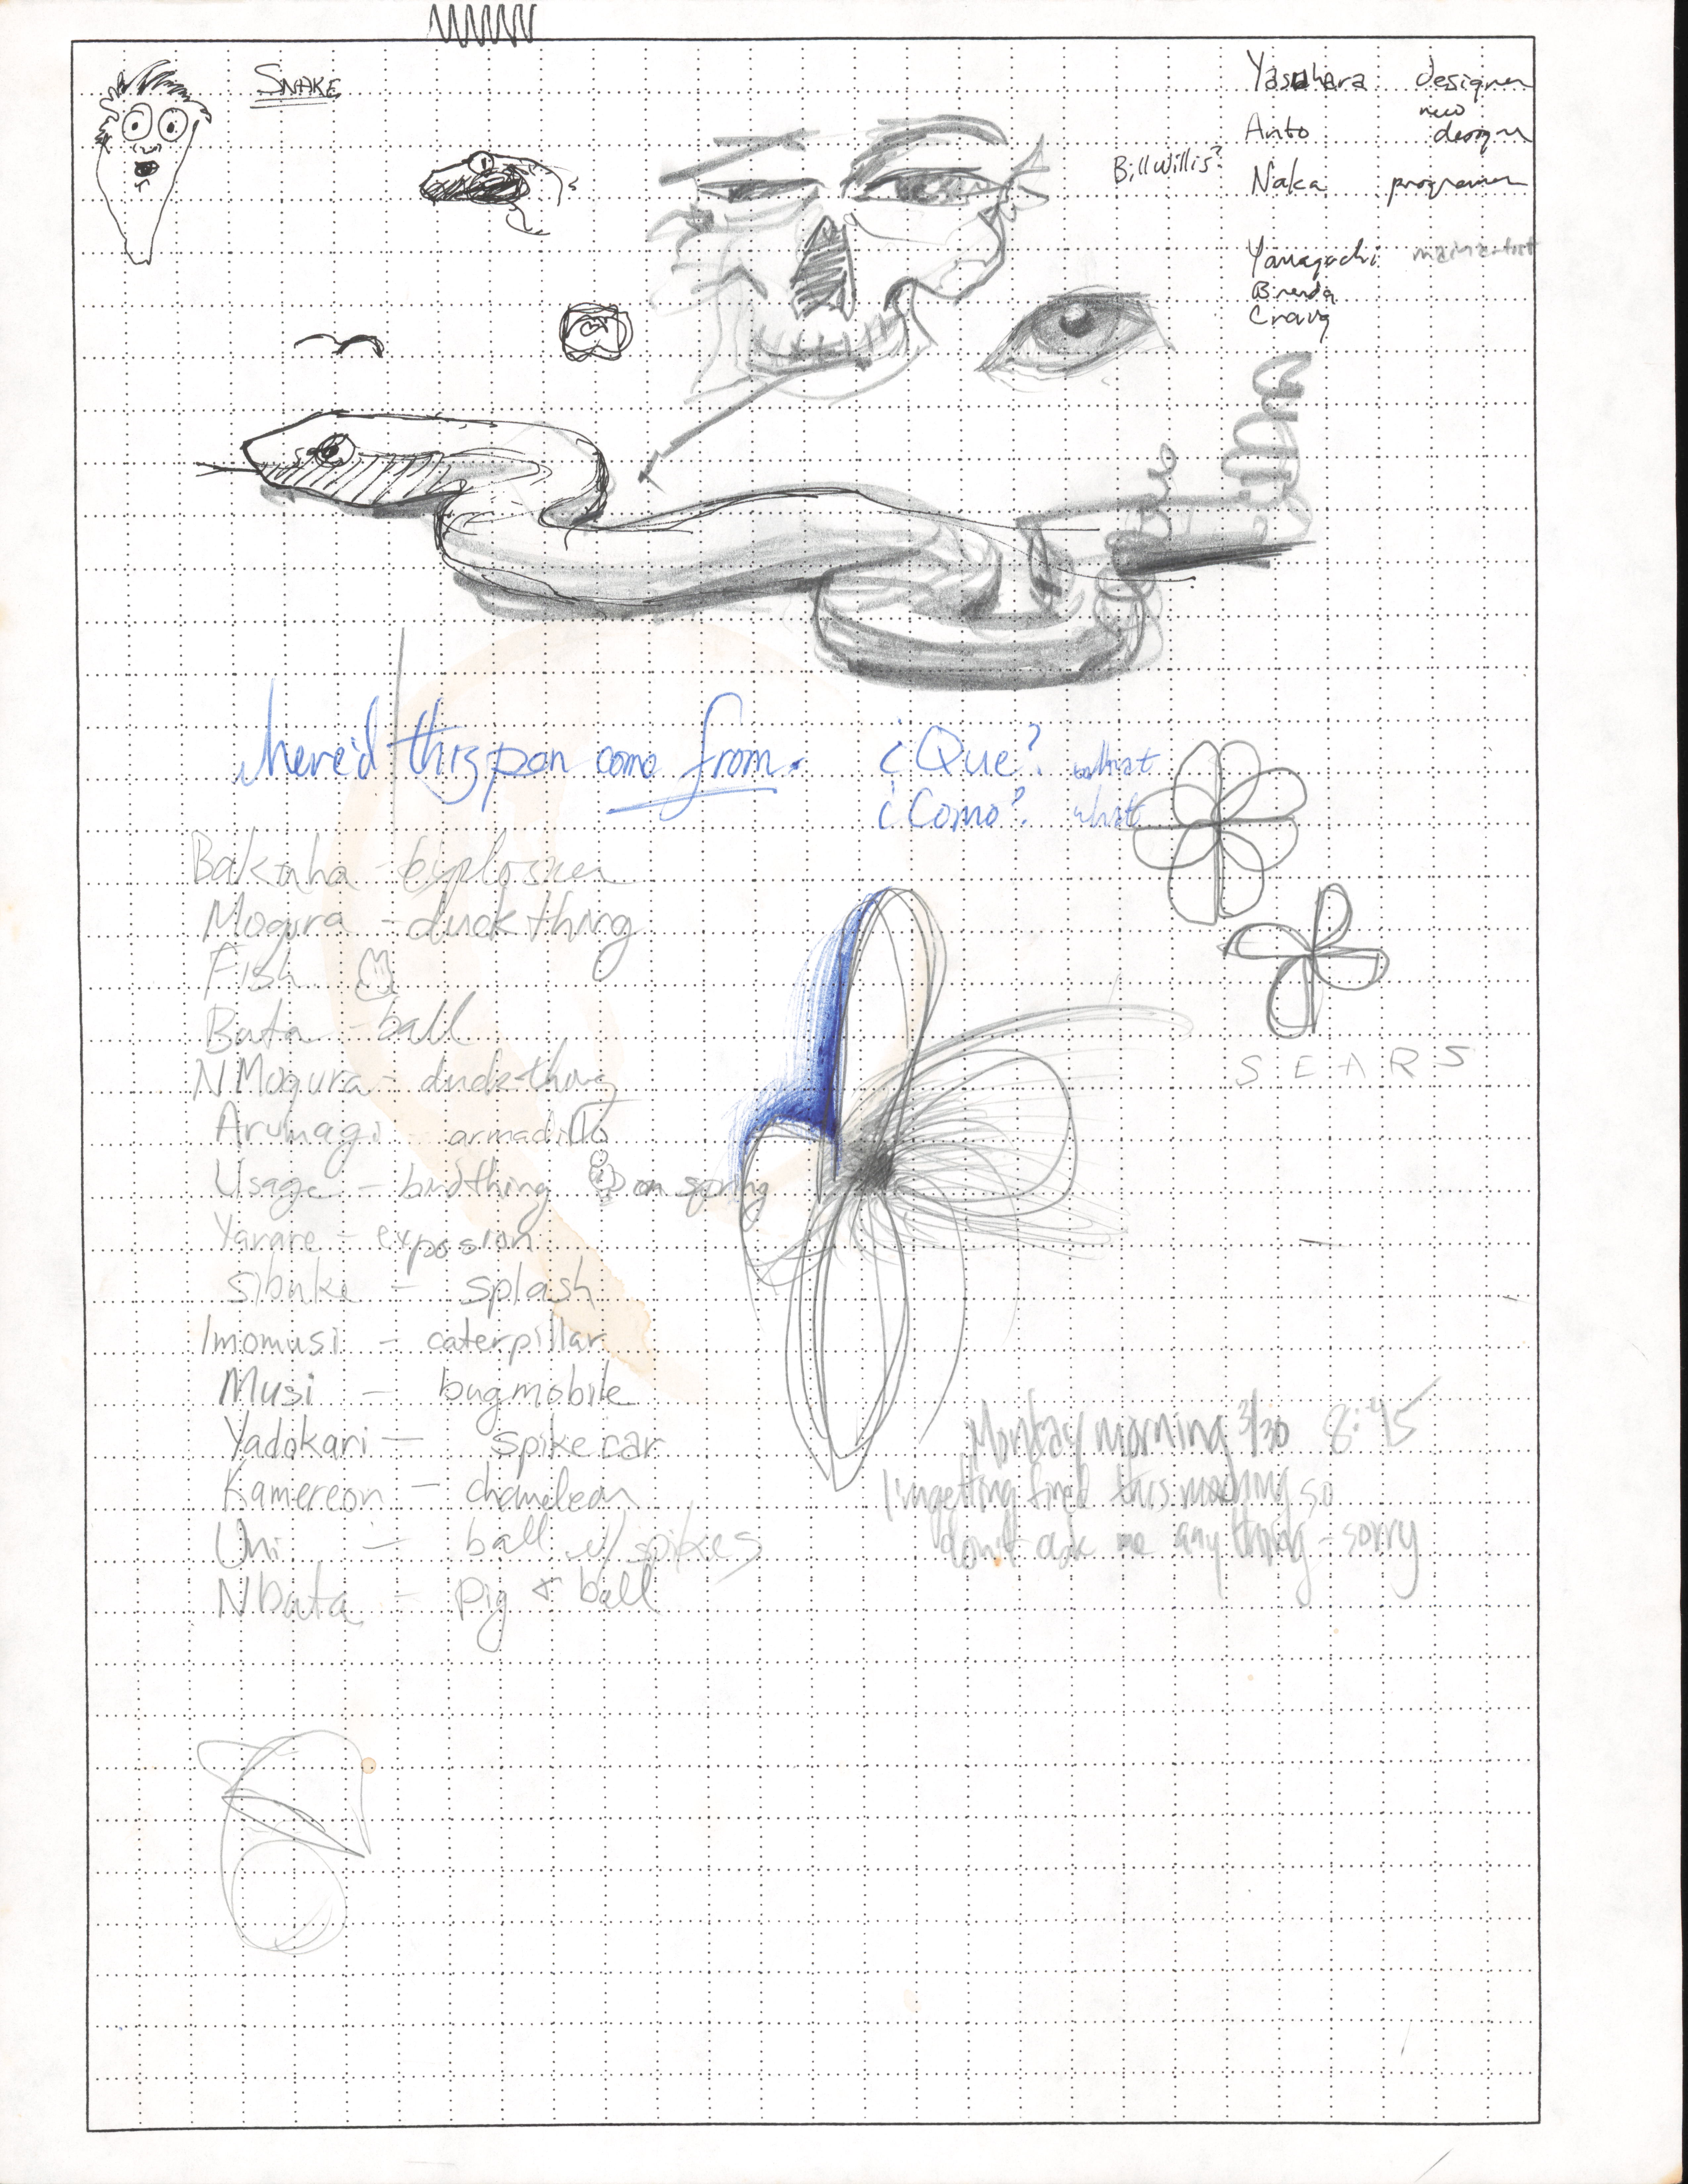 SNAKE
Yasuhara designer
new
Anto design
Bill Willis?
Naka programer
Yamaguchi main artist
Brenda
Craig
where'd this pen come from.
¿Que? what
¿Como? what
Bakuha - explosion
Mogura - duck thing
Fish
Buta - ball
N Mogura - duck thing
SEARS
Arumagi armadillo
Usage - birdthing on spring
Yarare - exposion
Sibuke - splash
Imomusi - caterpillar
Musi - bugmobile
Yadokari - spike car
Kamereon - chameleon
Uni - ball w/ spikes
Nbuta - pig & ball
Monday morning 3/30 8:45
I'm getting fired this morning so
don't ask me anything - sorry